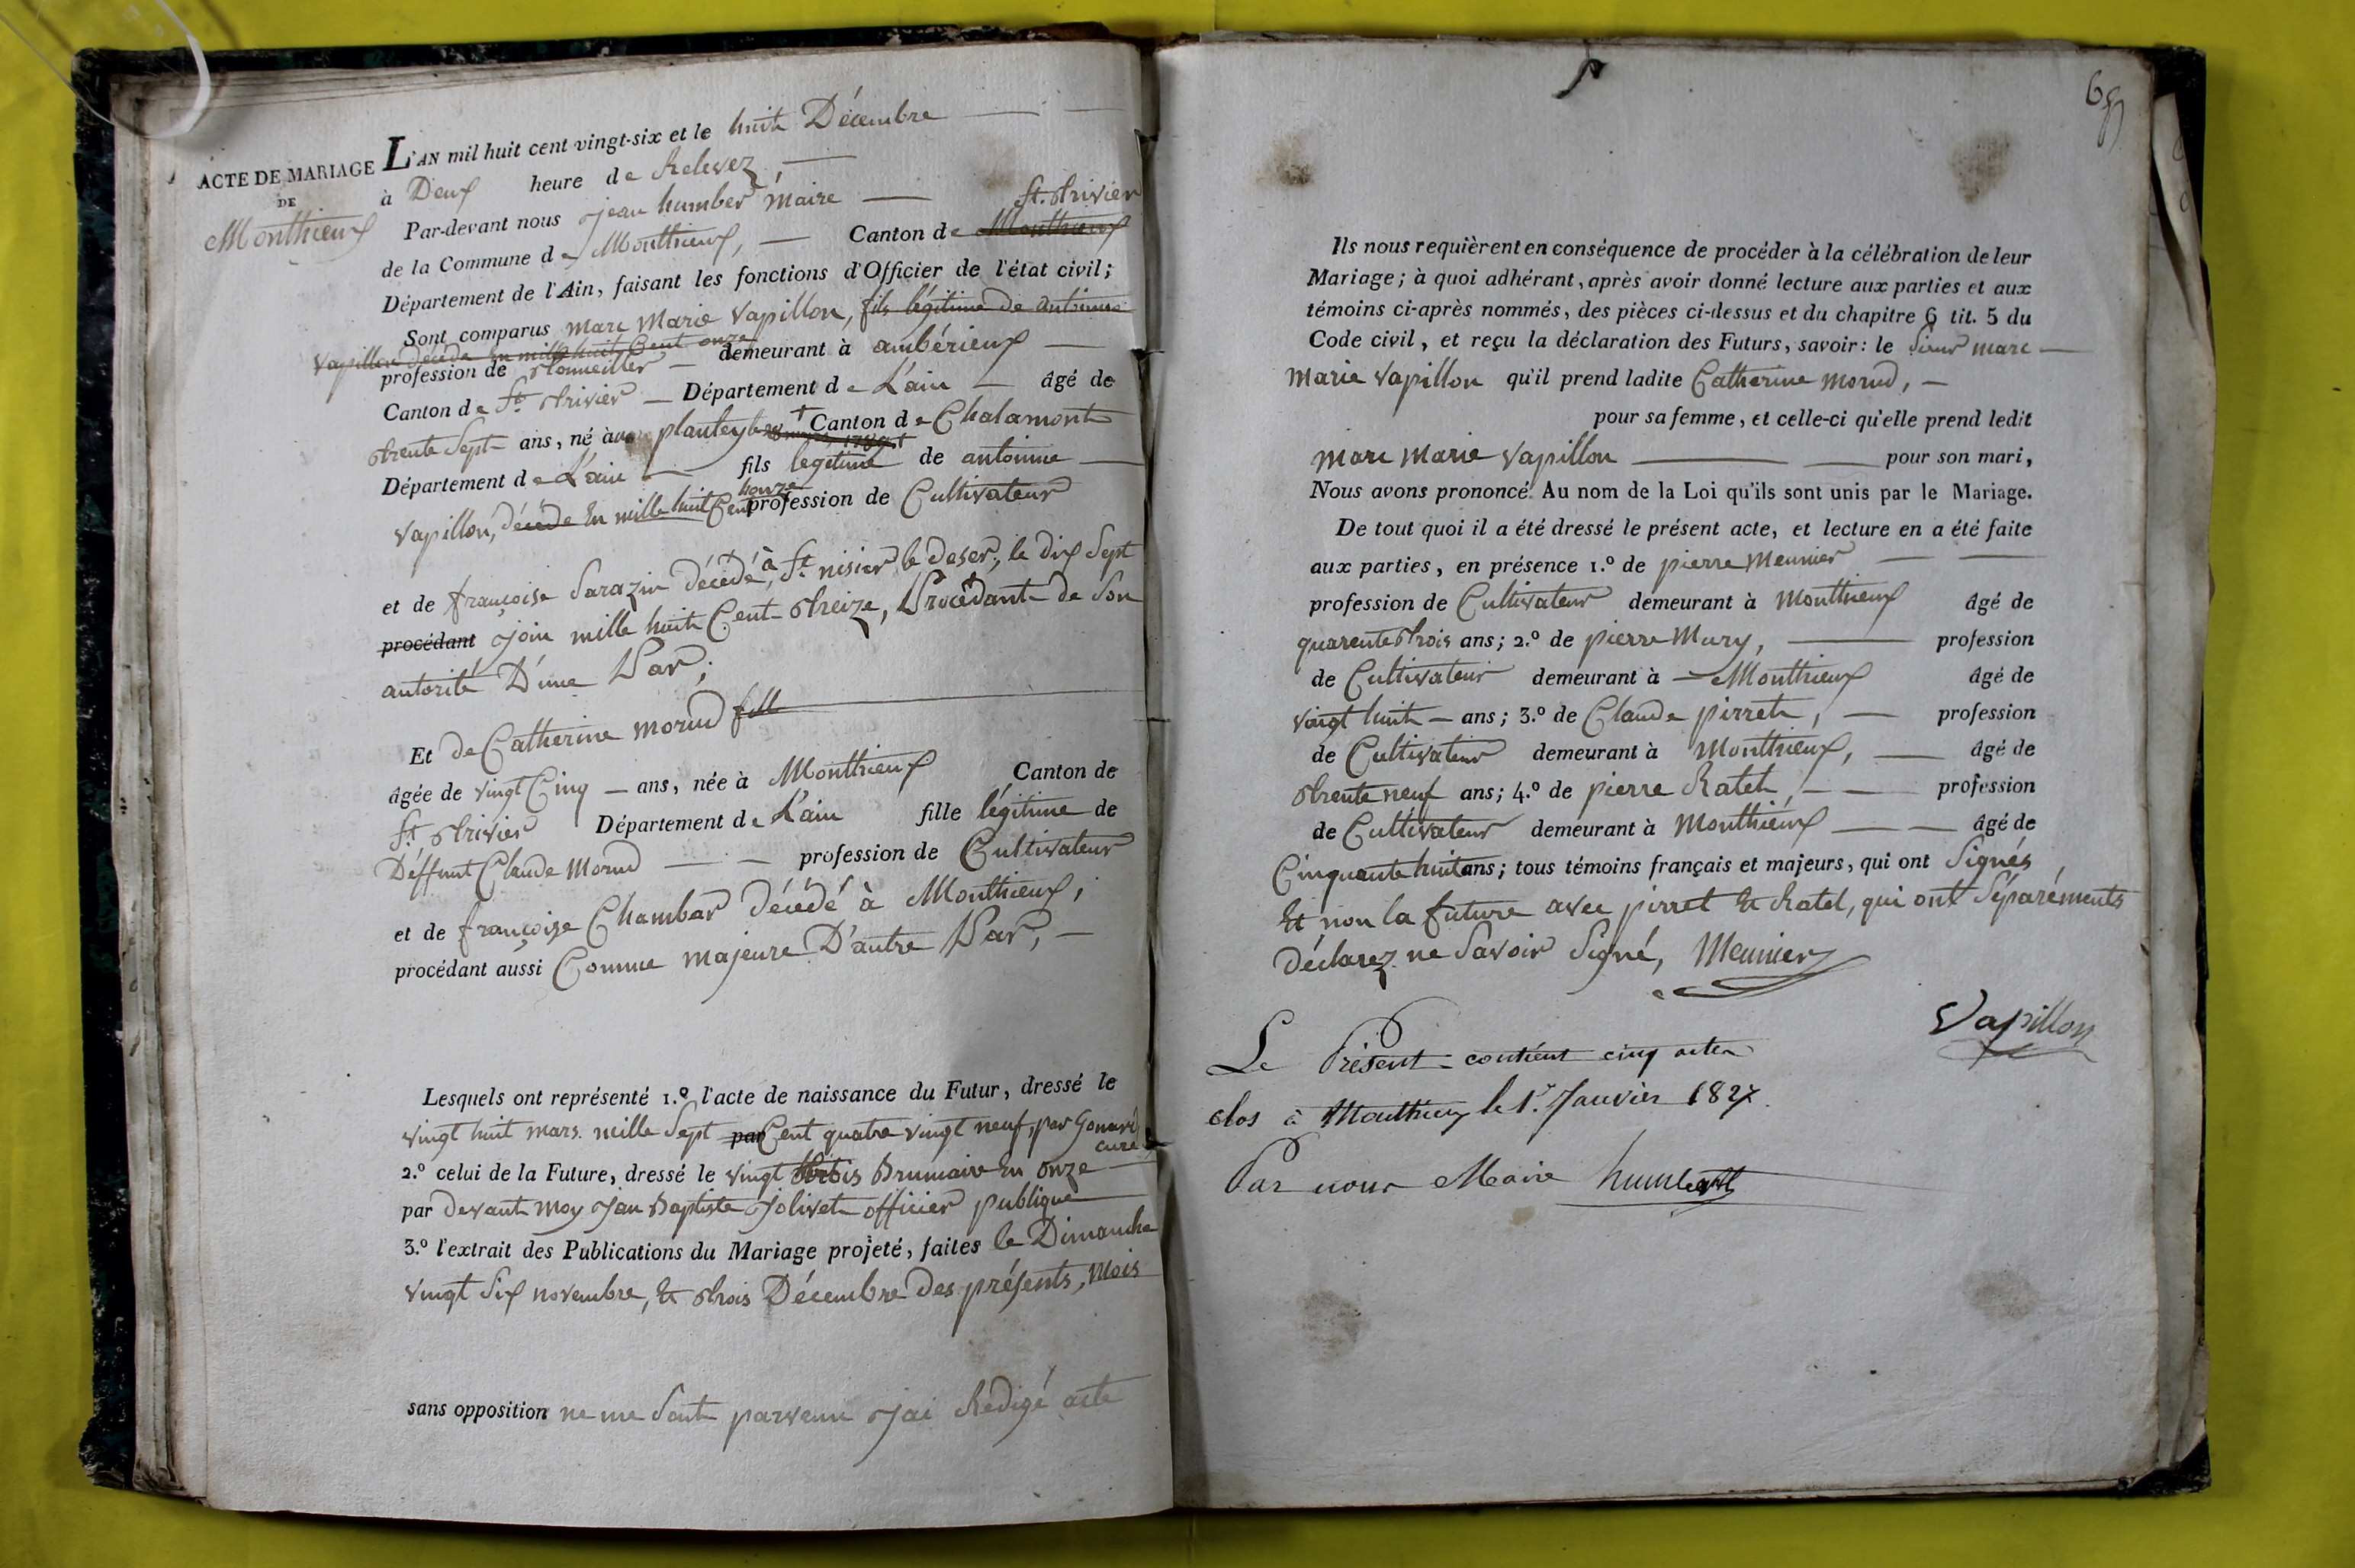 ACTE DE MARIAGE
DE
Monthieux
L'AN mil huit cent vingt-six et le huit Décembre
à Deux heure de Relevez,
Par-devant nous jean humber maire
de la Commune de Monthieux, Canton de Monthieux St. trivier
Département de l'Ain, faisant les fonctions d'Officier de l'état civil;
Sont comparus marc Marie Vapillon, fils légitime de antoinne
Vapillon décédé En mille huit Cent onze
profession de tonneillier demeurant à ambérieux
Canton de St. trivier Département de L'ain âgé de
trente Sept ans, né à planteyt Canton de Chalamont
Département de L'ain fils legitime de antoinne
Vapillon, décédé En mille huit Cent honze profession de Cultivateur
et de françoise Sarazin décédé à St. nisier le deser, le dix Sept
procédant join mille huit Cent treize, Procédant de Son
autorité D'une Par;
Et de Catherine morud fille
âgée de vingt Cinq ans, née à Monthieux Canton de
St. trivier Département de L'ain fille légitime de
Déffunt Claude Morud profession de Cultivateur
et de françoize Chambar décédé à Monthieux;
procédant aussi Comme majeure D'autre Par,
Lesquels ont représenté 1.º l'acte de naissance du Futur, dressé le
vingt huit mars mille Sept par Cent quatre vingt neuf, par Gonard
curé
2.º celui de la Future, dressé le vingt trois Brumaire En onze
par devant moy Jean Baptiste Jolivet officier publique
3.º l'extrait des Publications du Mariage projeté, faites le Dimanche
vingt Six novembre, Et trois Décembre des présents, Mois
sans opposition ne me Sont parvenu jai Rédigé acte
Ils nous requièrent en conséquence de procéder à la célébration de leur
Mariage; à quoi adhérant, après avoir donné lecture aux parties et aux
témoins ci-après nommés, des pièces ci-dessus et du chapitre 6 tit. 5 du
Code civil, et reçu la déclaration des Futurs, savoir: le Sieur marc
Marie Vapillon qu'il prend ladite Catherine morud,
pour sa femme, et celle-ci qu'elle prend ledit
Marc Marie Vapillon pour son mari,
Nous avons prononcé Au nom de la Loi qu'ils sont unis par le Mariage.
De tout quoi il a été dressé le présent acte, et lecture en a été faite
aux parties, en présence 1.º de pierre Meunier
profession de Cultivateur demeurant à Monthieux âgé de
quarente trois ans; 2.º de pierre Mury, profession
de Cultivateur demeurant à Monthieux âgé de
vingt huit ans; 3.º de Claude pirret, profession
de Cultivateur demeurant à Monthieux, âgé de
trente neuf ans; 4.º de pierre Ratet, profession
de Cultivateur demeurant à Monthieux âgé de
Cinquante huit ans; tous témoins français et majeurs, qui ont Signés
Et non la future avec pirret Et Ratet, qui ont Séparéments
déclarez ne Savoir Signé, Meunier
Vapillon
Le Présent contient cinq actes
clos à Monthieux le 1er. Janvier 1827.
Par nous Maire humbert